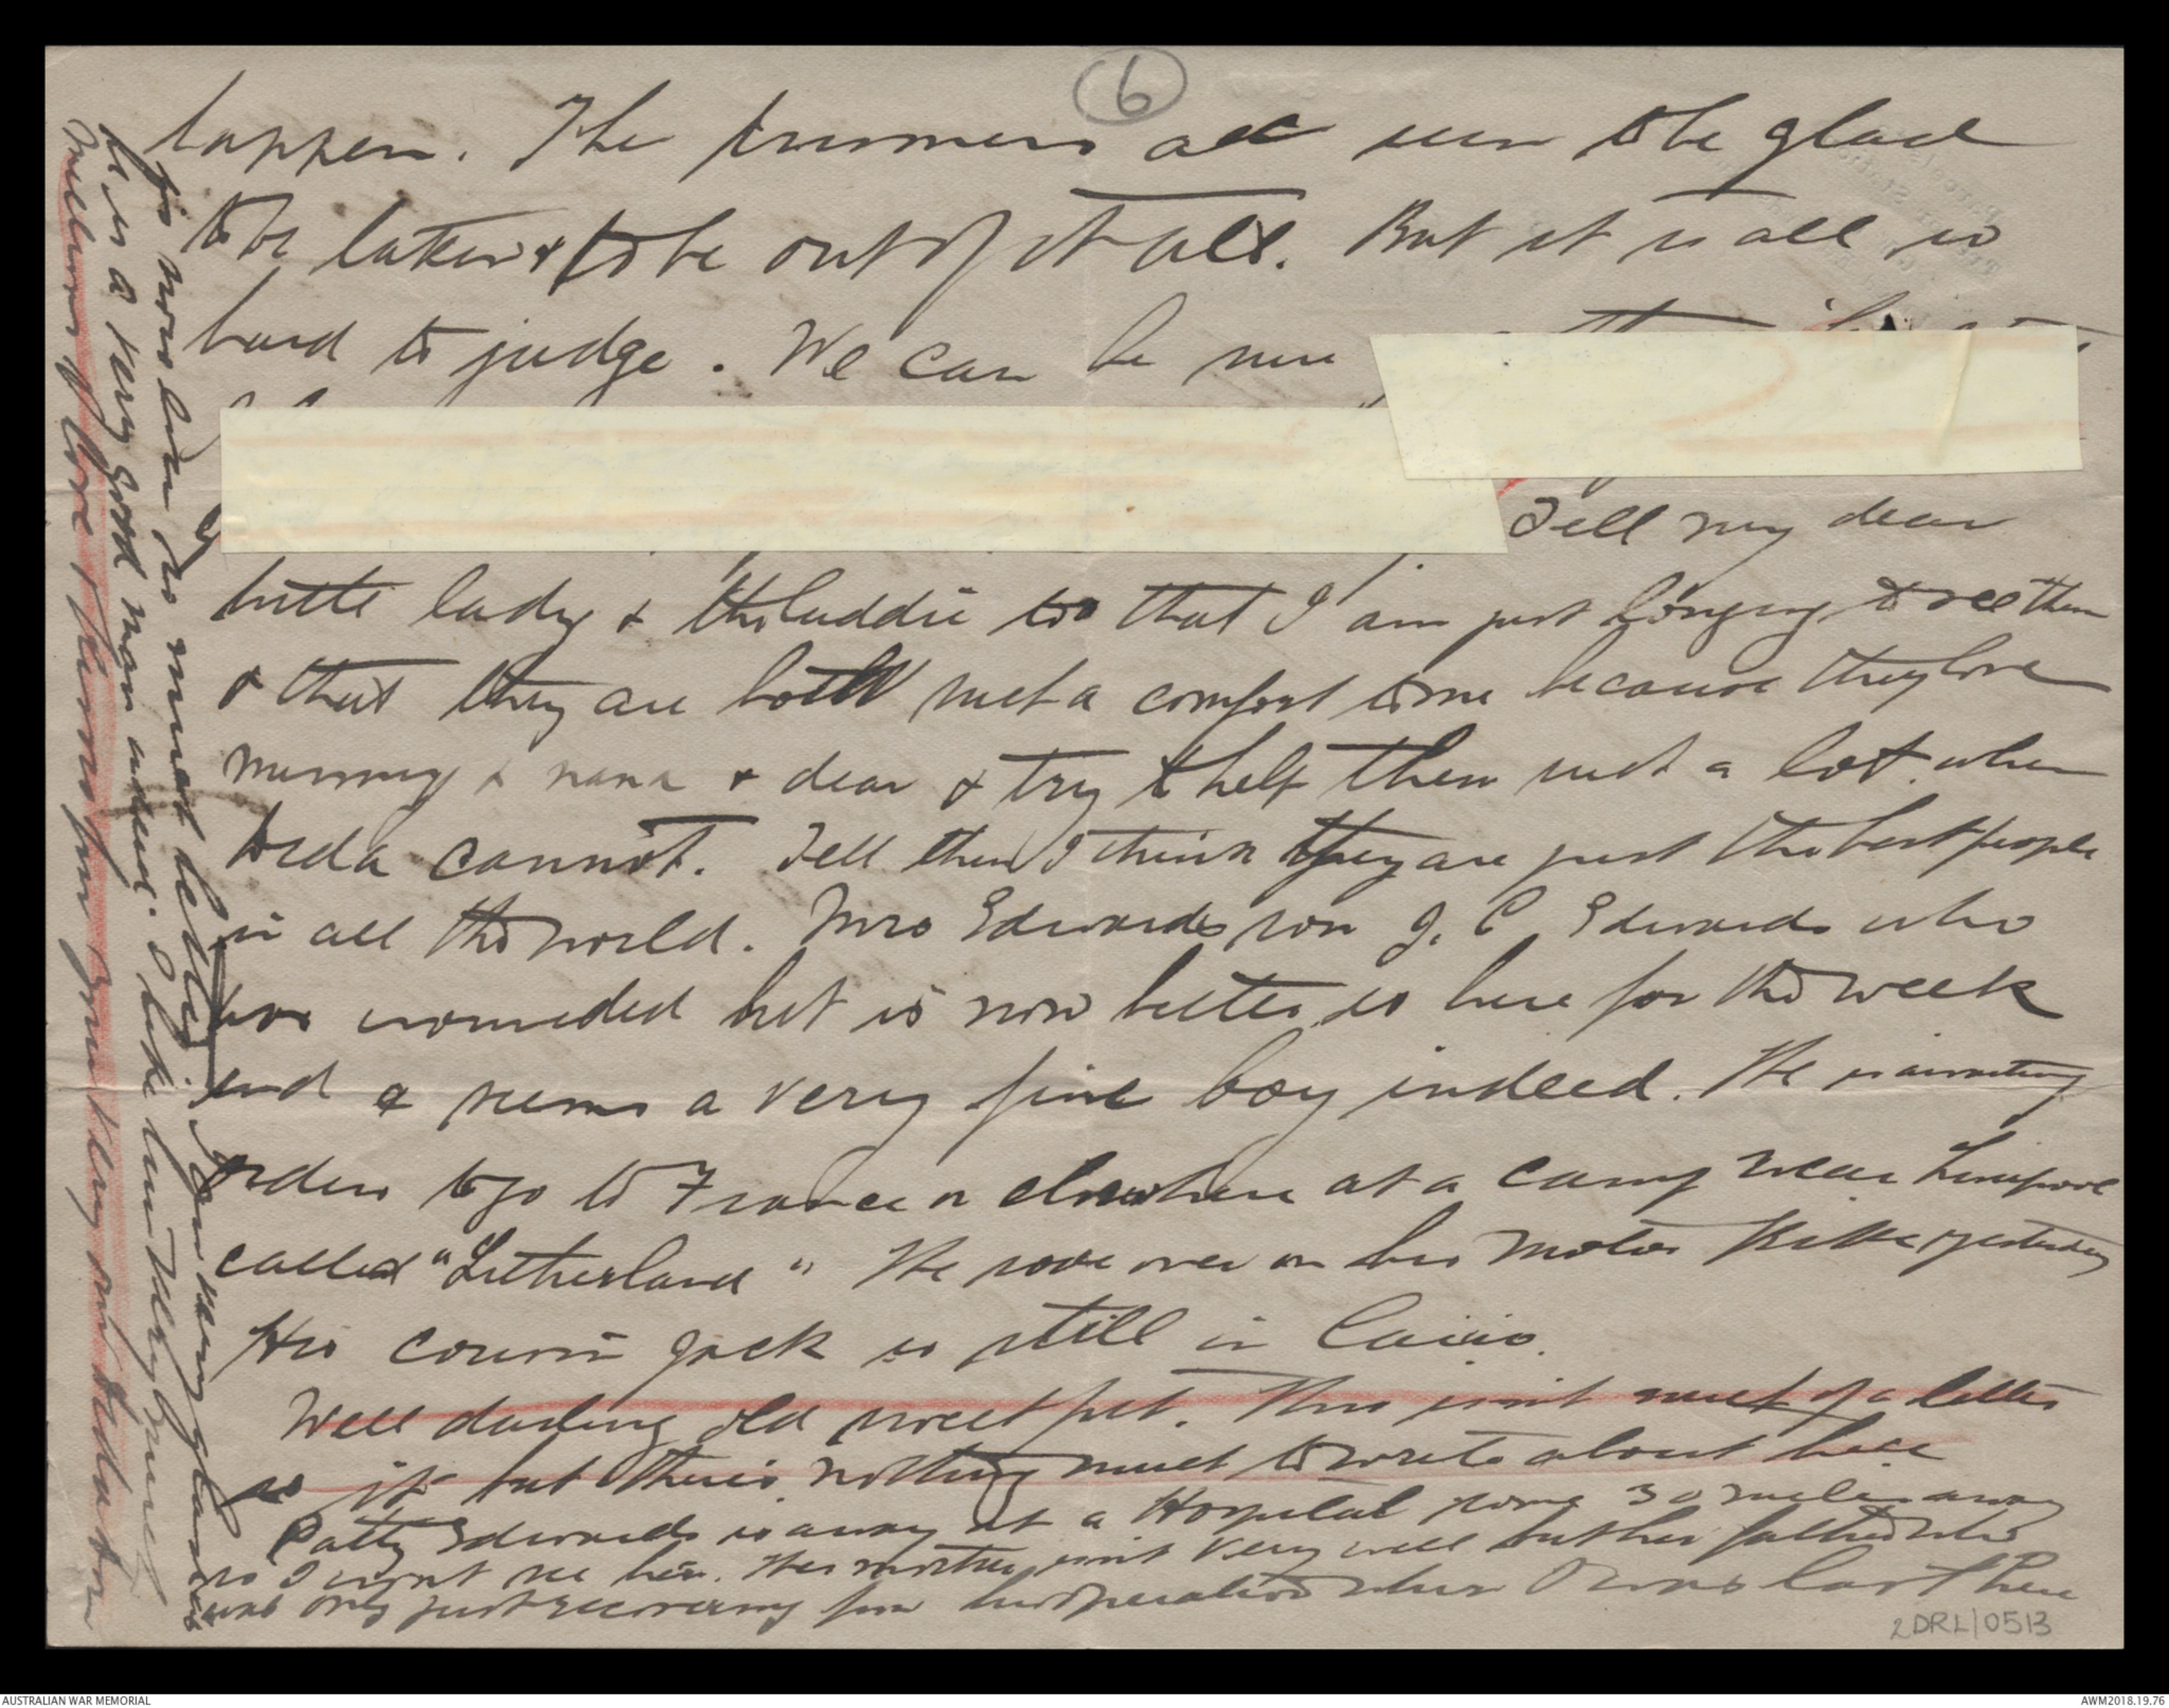 6
happen. The prisoners all seem to be glad
to be taken & to be out of it all. But it is all so
hard to judge. We can be sure
Tell my dear
little lady & the laddie too that I am just longing to see them
& that they are both such a comfort to me because they love
mummy & nana & dear & try to help them such a lot when
Deda cannot. Tell them I think they are just the best people
in all the world. Mrs Edwards son J. C. Edwards who
was wounded but is now better is here for the week
end & seems a very fine boy indeed. He is awaiting
orders to go to France or elsewhere at a camp near Liverpool
called "Litherland" He rode over on his motor bike yesterday
His cousin Jack is still in Cairo.
Well darling old sweet pet. This isn't much of a letter
is it but there's nothing much to write about here
Patty Edwards is away at a Hospital some 30 miles away
so I won't see her. Her mother isn't very well but her father who
was only just recovering from his operation when I was last here
is now looking so much better. I am very glad as
he is a very good man indeed. I like him very much
Millions of love & kisses from Your very own
2DRL/0513
AUSTRALIAN WAR MEMORIAL
AWM2018.19.76